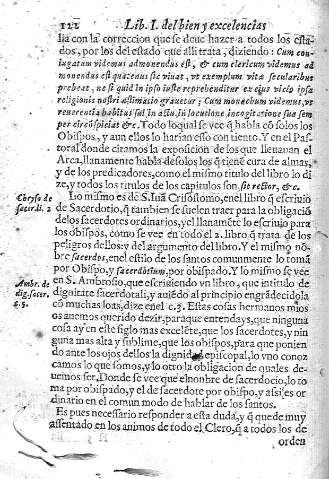 122 Lib. I. del bien y excelencias
lia con la correccion que se deue hazer a todos los esta-
dos, por los del estado que alli trata, diziendo: Cum con-
iugatum videmus admonendus est, & cum clericum videmus ad
monendus est quatenus sic viuat, vt exemplum vitæ secularibus
prebeat, ne si quid in ipso iuste reprehenditur ex eius vicio ipsa
religionis nostri æstimatio grauetur; Cum monachum videmus, vt
reuerentiã habitus sui in actu, in locutione in cogitatione sua sem
per circũspiciat &c. Todo lo qual se vee q̃ habla cõ solos los
Obispos, y aun ellos lo harian esso con tiento. Y en el Pas-
toral donde citamos la exposicion de los que lleuauan el
Arca, llanamente habla de solos los q̃ tienẽ cura de almas,
y de los predicadores, como el mismo titulo del libro lo di
ze, y todos los titulos de los capitulos son, sit rector, &c.
Chryso. de
sacer. li. 2
Lo mismo es de S. Iuã Crisostomo, en el libro q̃ escriuio
de Sacerdotio, q̃ tambien se suelen traer para la obligaciõ
de los sacerdotes ordinarios, y el llanamẽte lo escriuio para
los obispos, como se vee en todo el 2. libro, q̃ trata de los
peligros dellos: y del argumento del libro. Y el mismo nõ-
bre sacerdos, en el estilo de los santos comunmente lo tomã
por Obispo, y sacerdotium, por obispado. Y lo mismo se vee
Ambr. de
dig. sacer.
c. 5.
en S. Ambrosio, que escriuiendo vn libro, que intitulo de
dignitate sacerdotali, y auiẽdo al principio engrãdecidola
cõ muchas loas, dize en el c. 3. Estas cosas hermanos mios
os auemos querido dezir, para que entendays, que ninguna
cosa ay en este siglo mas excelẽte, que los sacerdotes, y nin
guna mas alta y sublime, que los obispos, para que ponien
do ante los ojos dellos la dignidad episcopal, lo vno conoz
camos lo que somos, y lo otro la obligacion de quales de-
uemos ser. Donde se vee que el nonbre de sacerdocio, lo to
ma por obispado, y el de sacerdote por obispo, y assi es or
dinario en el comun modo de hablar de los santos.
Es pues necessario responder a esta duda, y q̃ quede muy
assentado en los animos de todo el Clero, q̃ a todos los de
orden